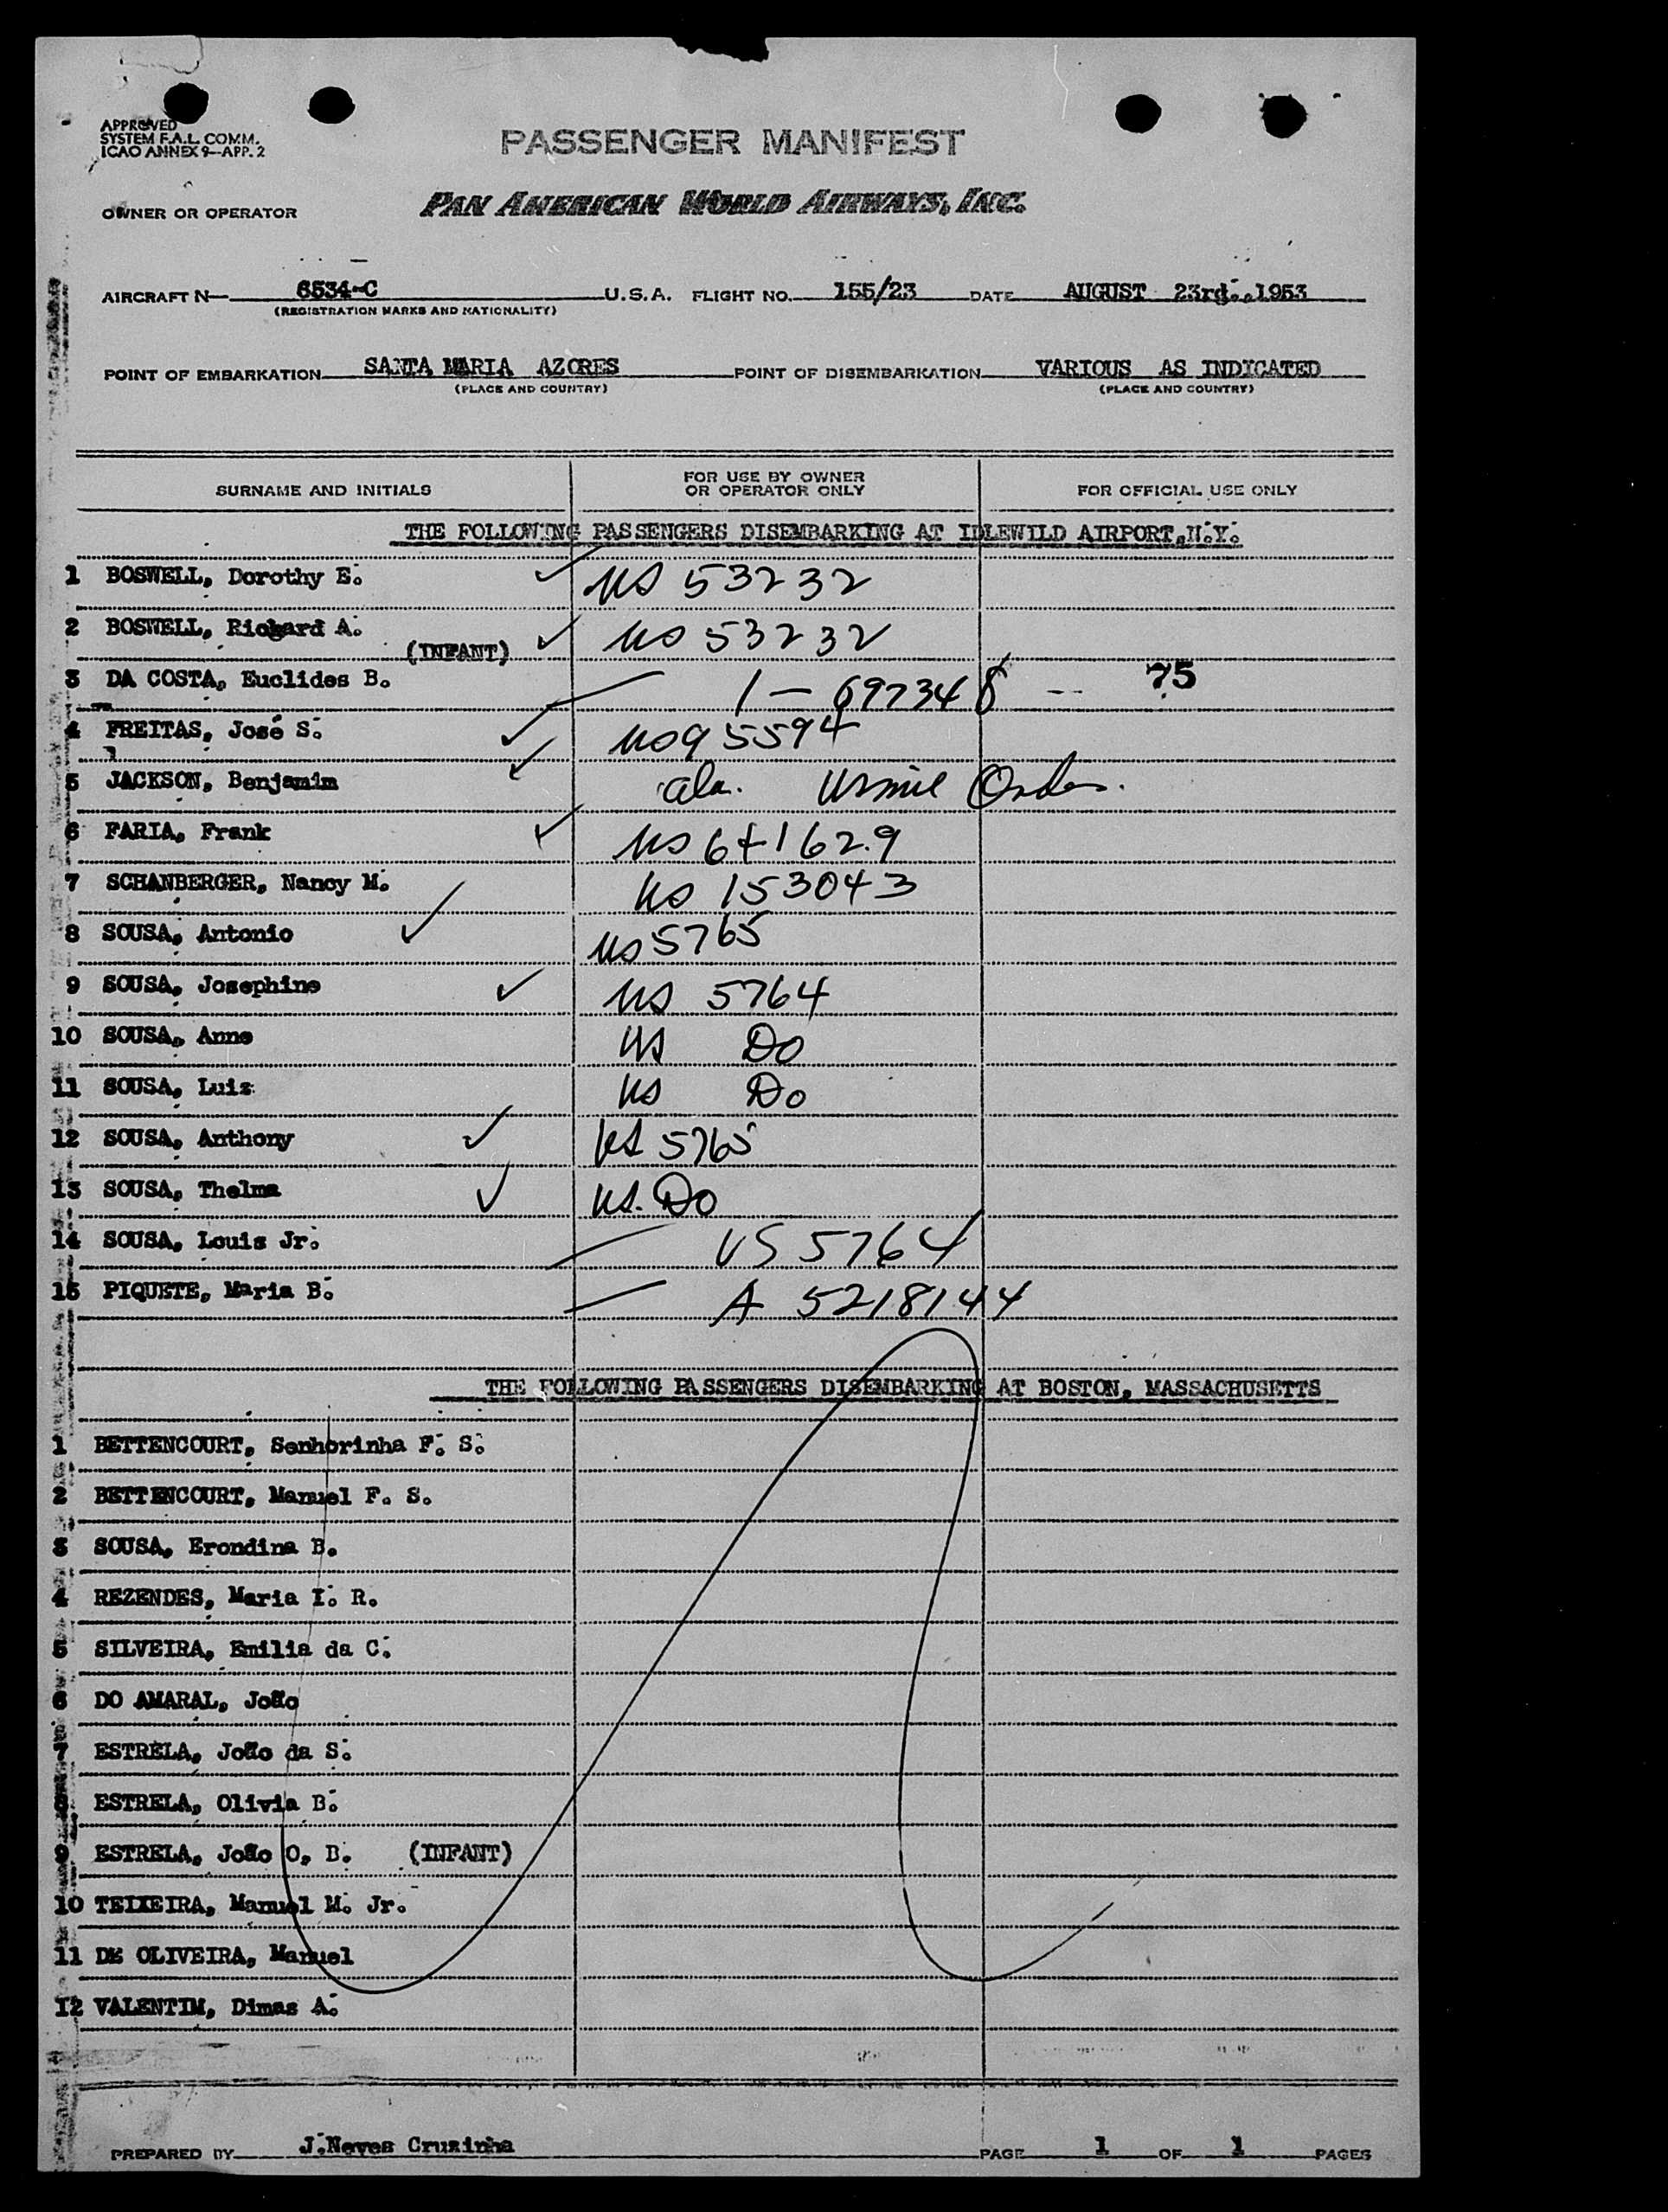 APPROVED
SYSTEM F.A.L. COMM.
ICAO ANNEX 9—APP. 2
PASSENGER MANIFEST
OWNER OR OPERATOR PAN AMERICAN WORLD AIRWAYS, INC.
AIRCRAFT N— 6534-C U.S.A. FLIGHT NO. 155/23 DATE AUGUST 23rd., 1953
(REGISTRATION MARKS AND NATIONALITY)
POINT OF EMBARKATION SANTA MARIA AZORES POINT OF DISEMBARKATION VARIOUS AS INDICATED
(PLACE AND COUNTRY) (PLACE AND COUNTRY)
SURNAME AND INITIALS FOR USE BY OWNER OR OPERATOR ONLY FOR OFFICIAL USE ONLY
THE FOLLOWING PASSENGERS DISEMBARKING AT IDLEWILD AIRPORT, N.Y.
1 BOSWELL, Dorothy E. US 53232
2 BOSWELL, Richard A. (INFANT) US 53232
3 DA COSTA, Euclides B. 1 — 697348 -- 75
4 FREITAS, José S. US 95594
5 JACKSON, Benjamim Order.
6 FARIA, Frank US 641629
7 SCHANBERGER, Nancy M. US 153043
8 SOUSA, Antonio US 5765
9 SOUSA, Josephine US 5764
10 SOUSA, Anne US Do
11 SOUSA, Luiz US Do
12 SOUSA, Anthony US 5765
13 SOUSA, Thelma US. Do
14 SOUSA, Louis Jr. US 5764
15 PIQUETE, Maria B. A 5218144
THE FOLLOWING PASSENGERS DISEMBARKING AT BOSTON, MASSACHUSETTS
1 BETTENCOURT, Senhorinha F. S.
2 BETTENCOURT, Manuel F. S.
3 SOUSA, Erondina B.
4 REZENDES, Maria I. R.
5 SILVEIRA, Emilia da C.
6 DO AMARAL, João
7 ESTRELA, João da S.
8 ESTRELA, Olivia B.
9 ESTRELA, João O, B. (INFANT)
10 TEIXEIRA, Manuel M. Jr.
11 DE OLIVEIRA, Manuel
12 VALENTIM, Dimas A.
PREPARED BY J.Neves Cruzinha PAGE 1 OF 1 PAGES